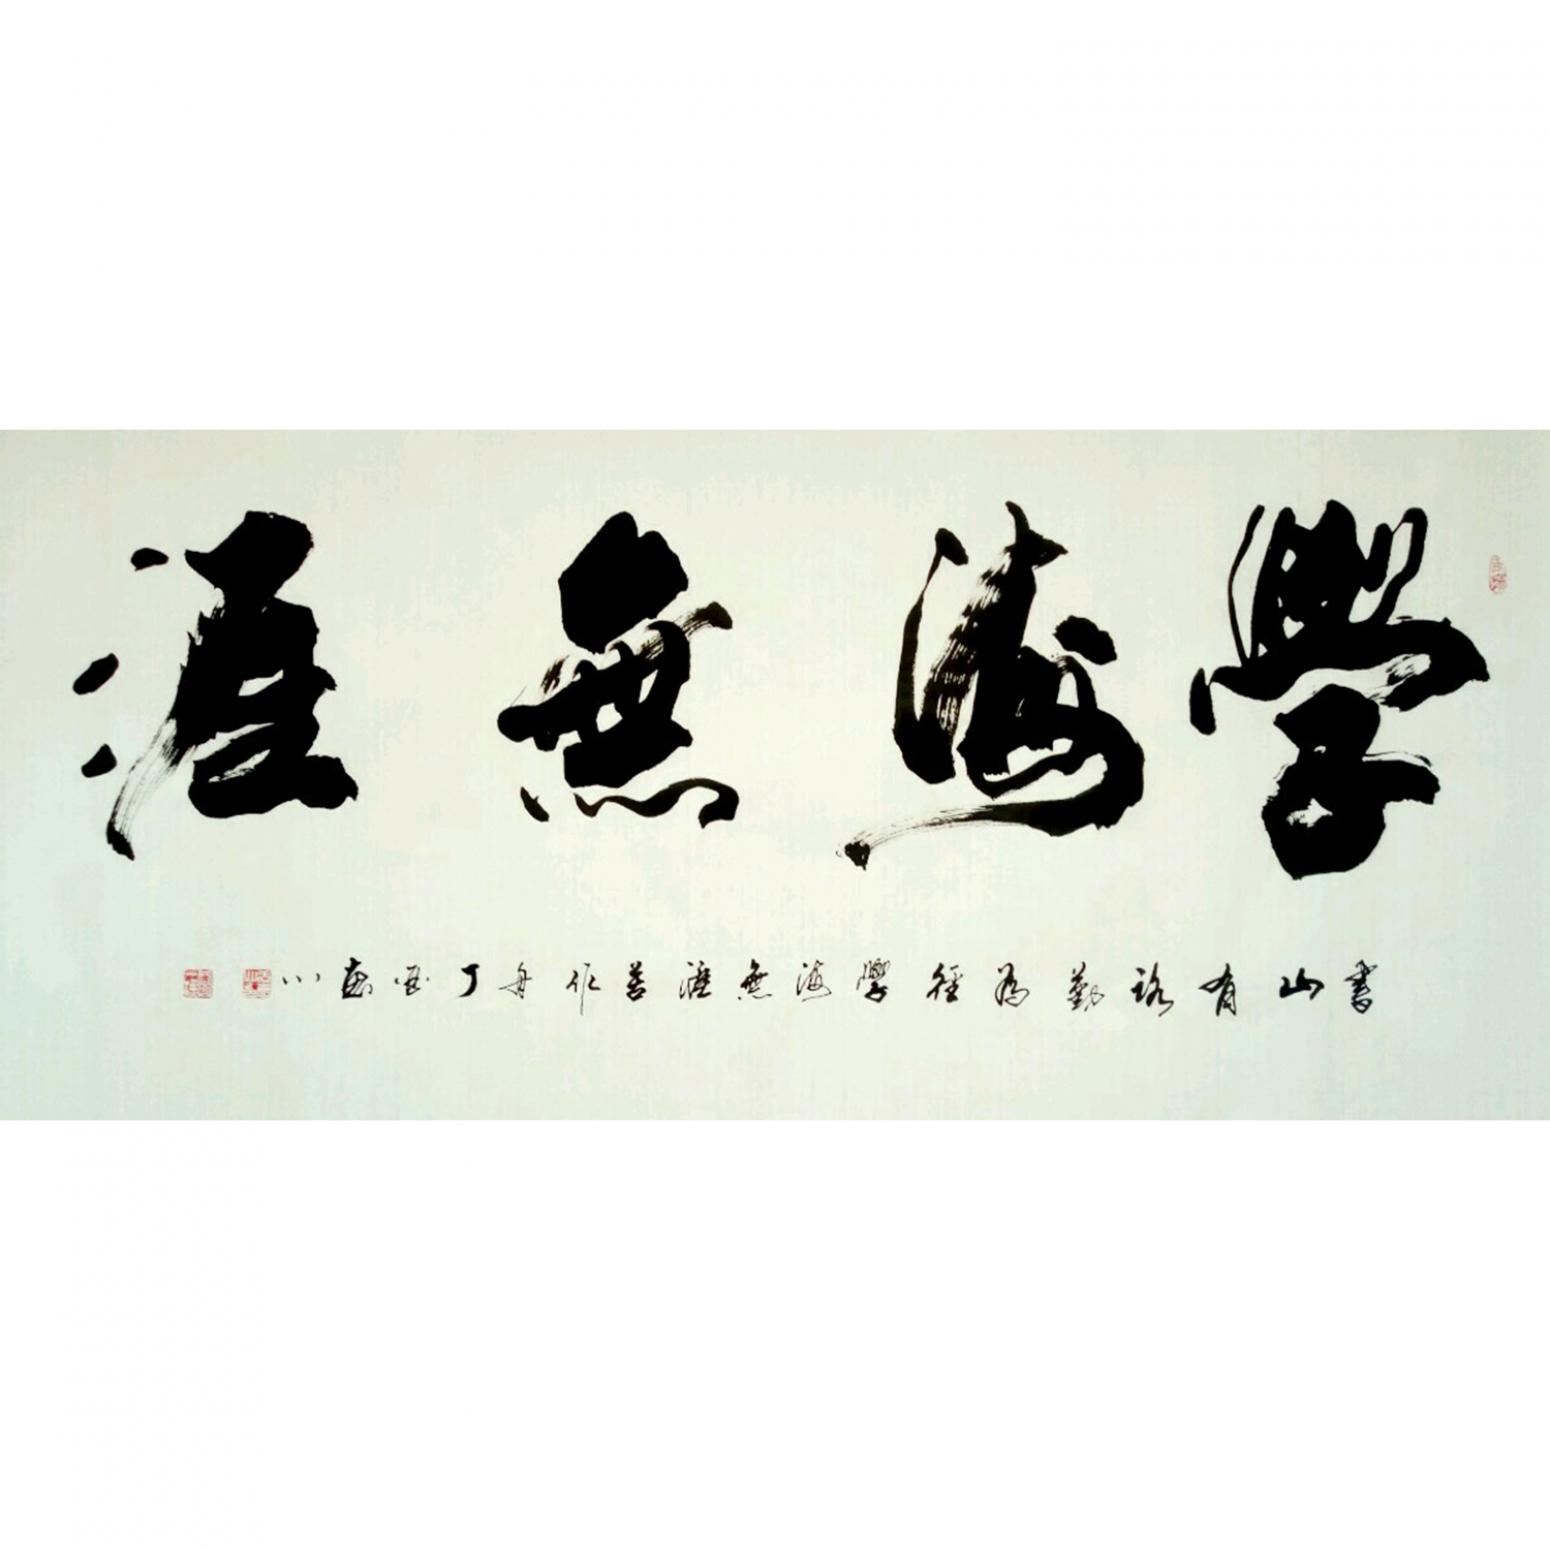 學海無涯
書山有路勤為徑學海無涯苦作舟丁酉憲小